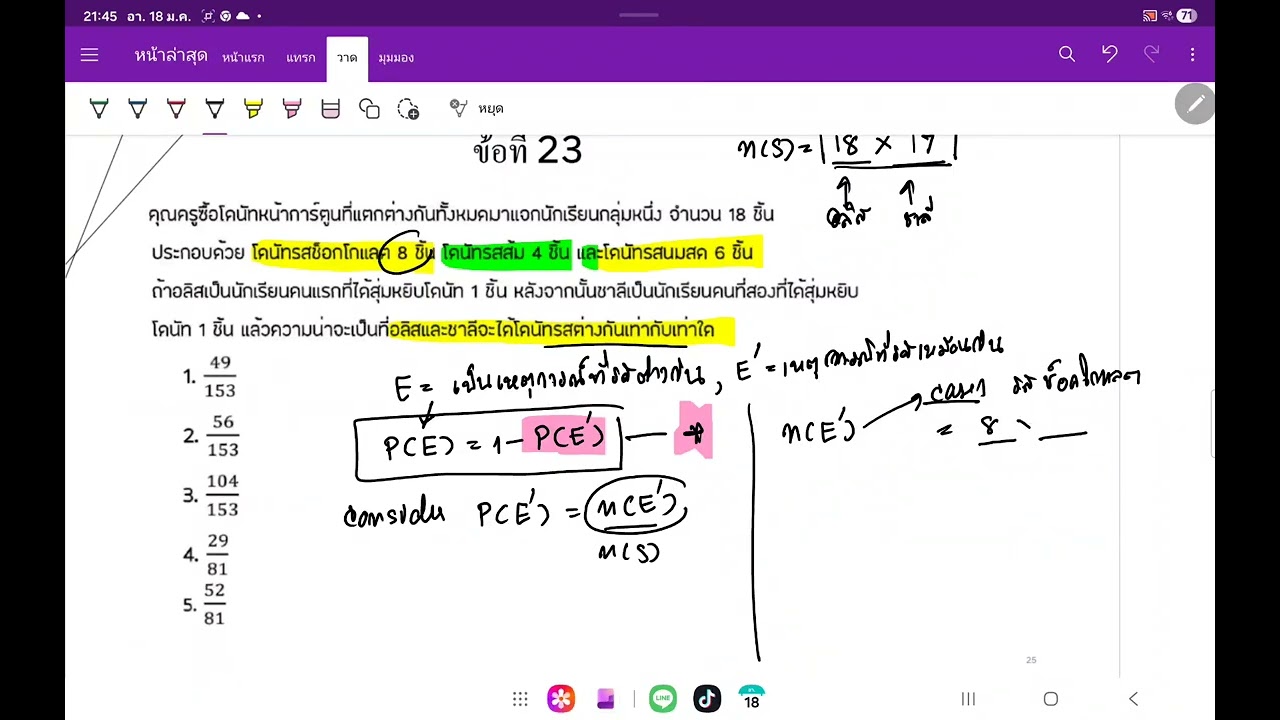 21:45 อา. 18 ม.ค.
71
หน้าล่าสุด หน้าแรก แทรก วาด มุมมอง
หยุด
ข้อที่ 23
n(S) = 18 × 17
อลิส ชาลี
คุณครูซื้อโดนัทหน้าการ์ตูนที่แตกต่างกันทั้งหมดมาแจกนักเรียนกลุ่มหนึ่ง จำนวน 18 ชิ้น
ประกอบด้วย โดนัทรสช็อกโกแลต 8 ชิ้น โดนัทรสส้ม 4 ชิ้น และโดนัทรสนมสด 6 ชิ้น
ถ้าอลิสเป็นนักเรียนคนแรกที่ได้สุ่มหยิบโดนัท 1 ชิ้น หลังจากนั้นชาลีเป็นนักเรียนคนที่สองที่ได้สุ่มหยิบ
โดนัท 1 ชิ้น แล้วความน่าจะเป็นที่อลิสและชาลีจะได้โดนัทรสต่างกันเท่ากับเท่าใด
1. 49/153
2. 56/153
3. 104/153
4. 29/81
5. 52/81
E = เป็นเหตุการณ์ที่รสต่างกัน, E' = เหตุการณ์ที่รสเหมือนกัน
P(E) = 1 - P(E') — *
consider P(E') = n(E')
n(S)
n(E') case1 รสช็อคโกแลต
= 8 ×
25
18